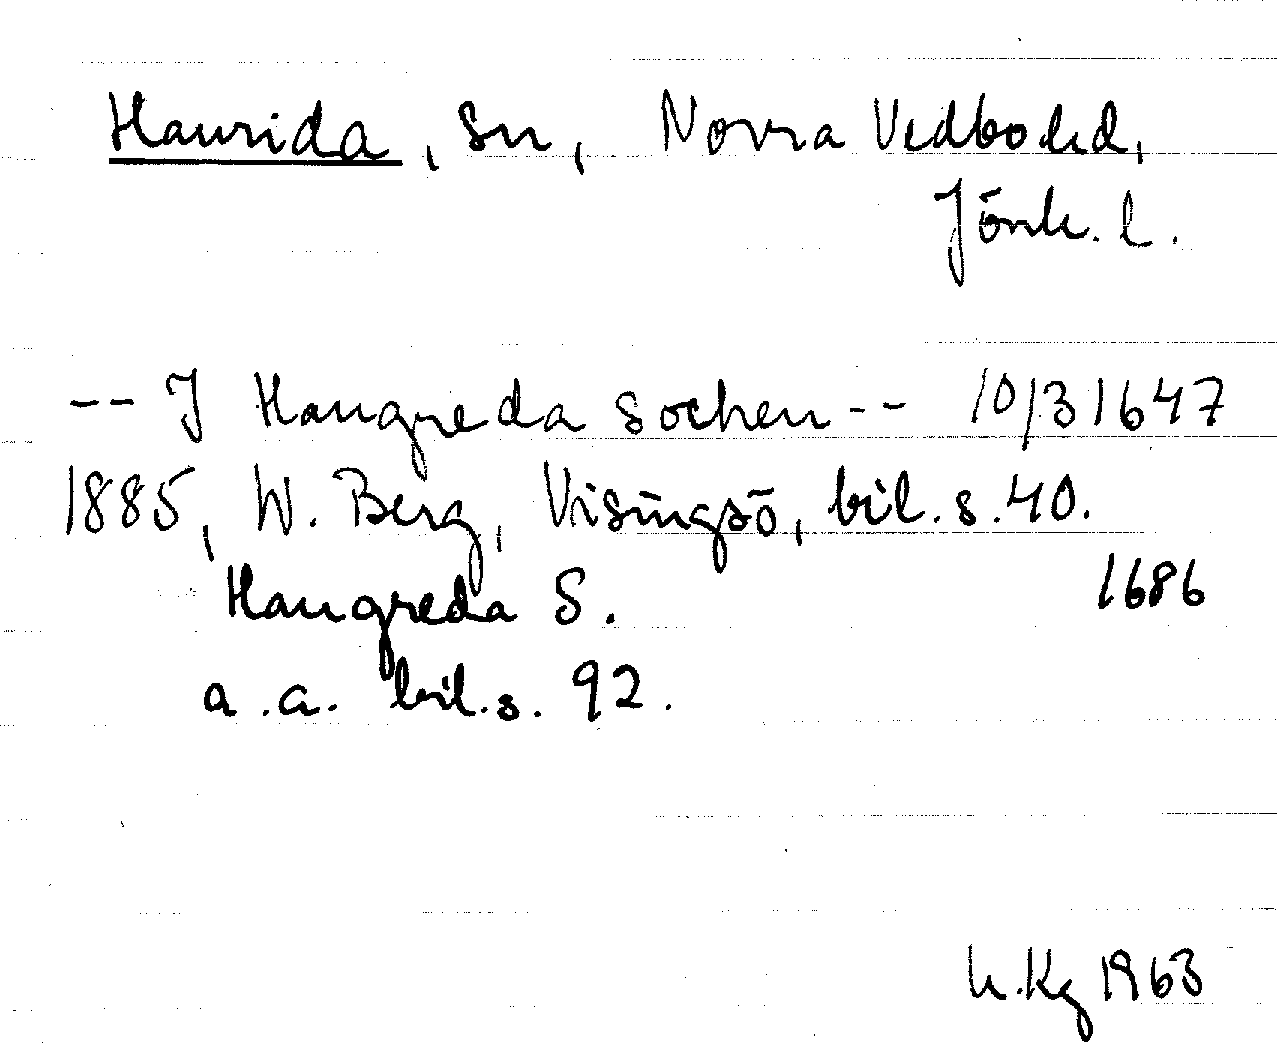 Haurida, Sn, Norra Vedbo hd,
Jönk. l.
-- J Haugreda sochen -- 10/3 1647
1885, W. Berg, Visingsö, bil. s. 40.
Haugreda S. 1686
a.a. bil. s. 92.
h.Kg 1963